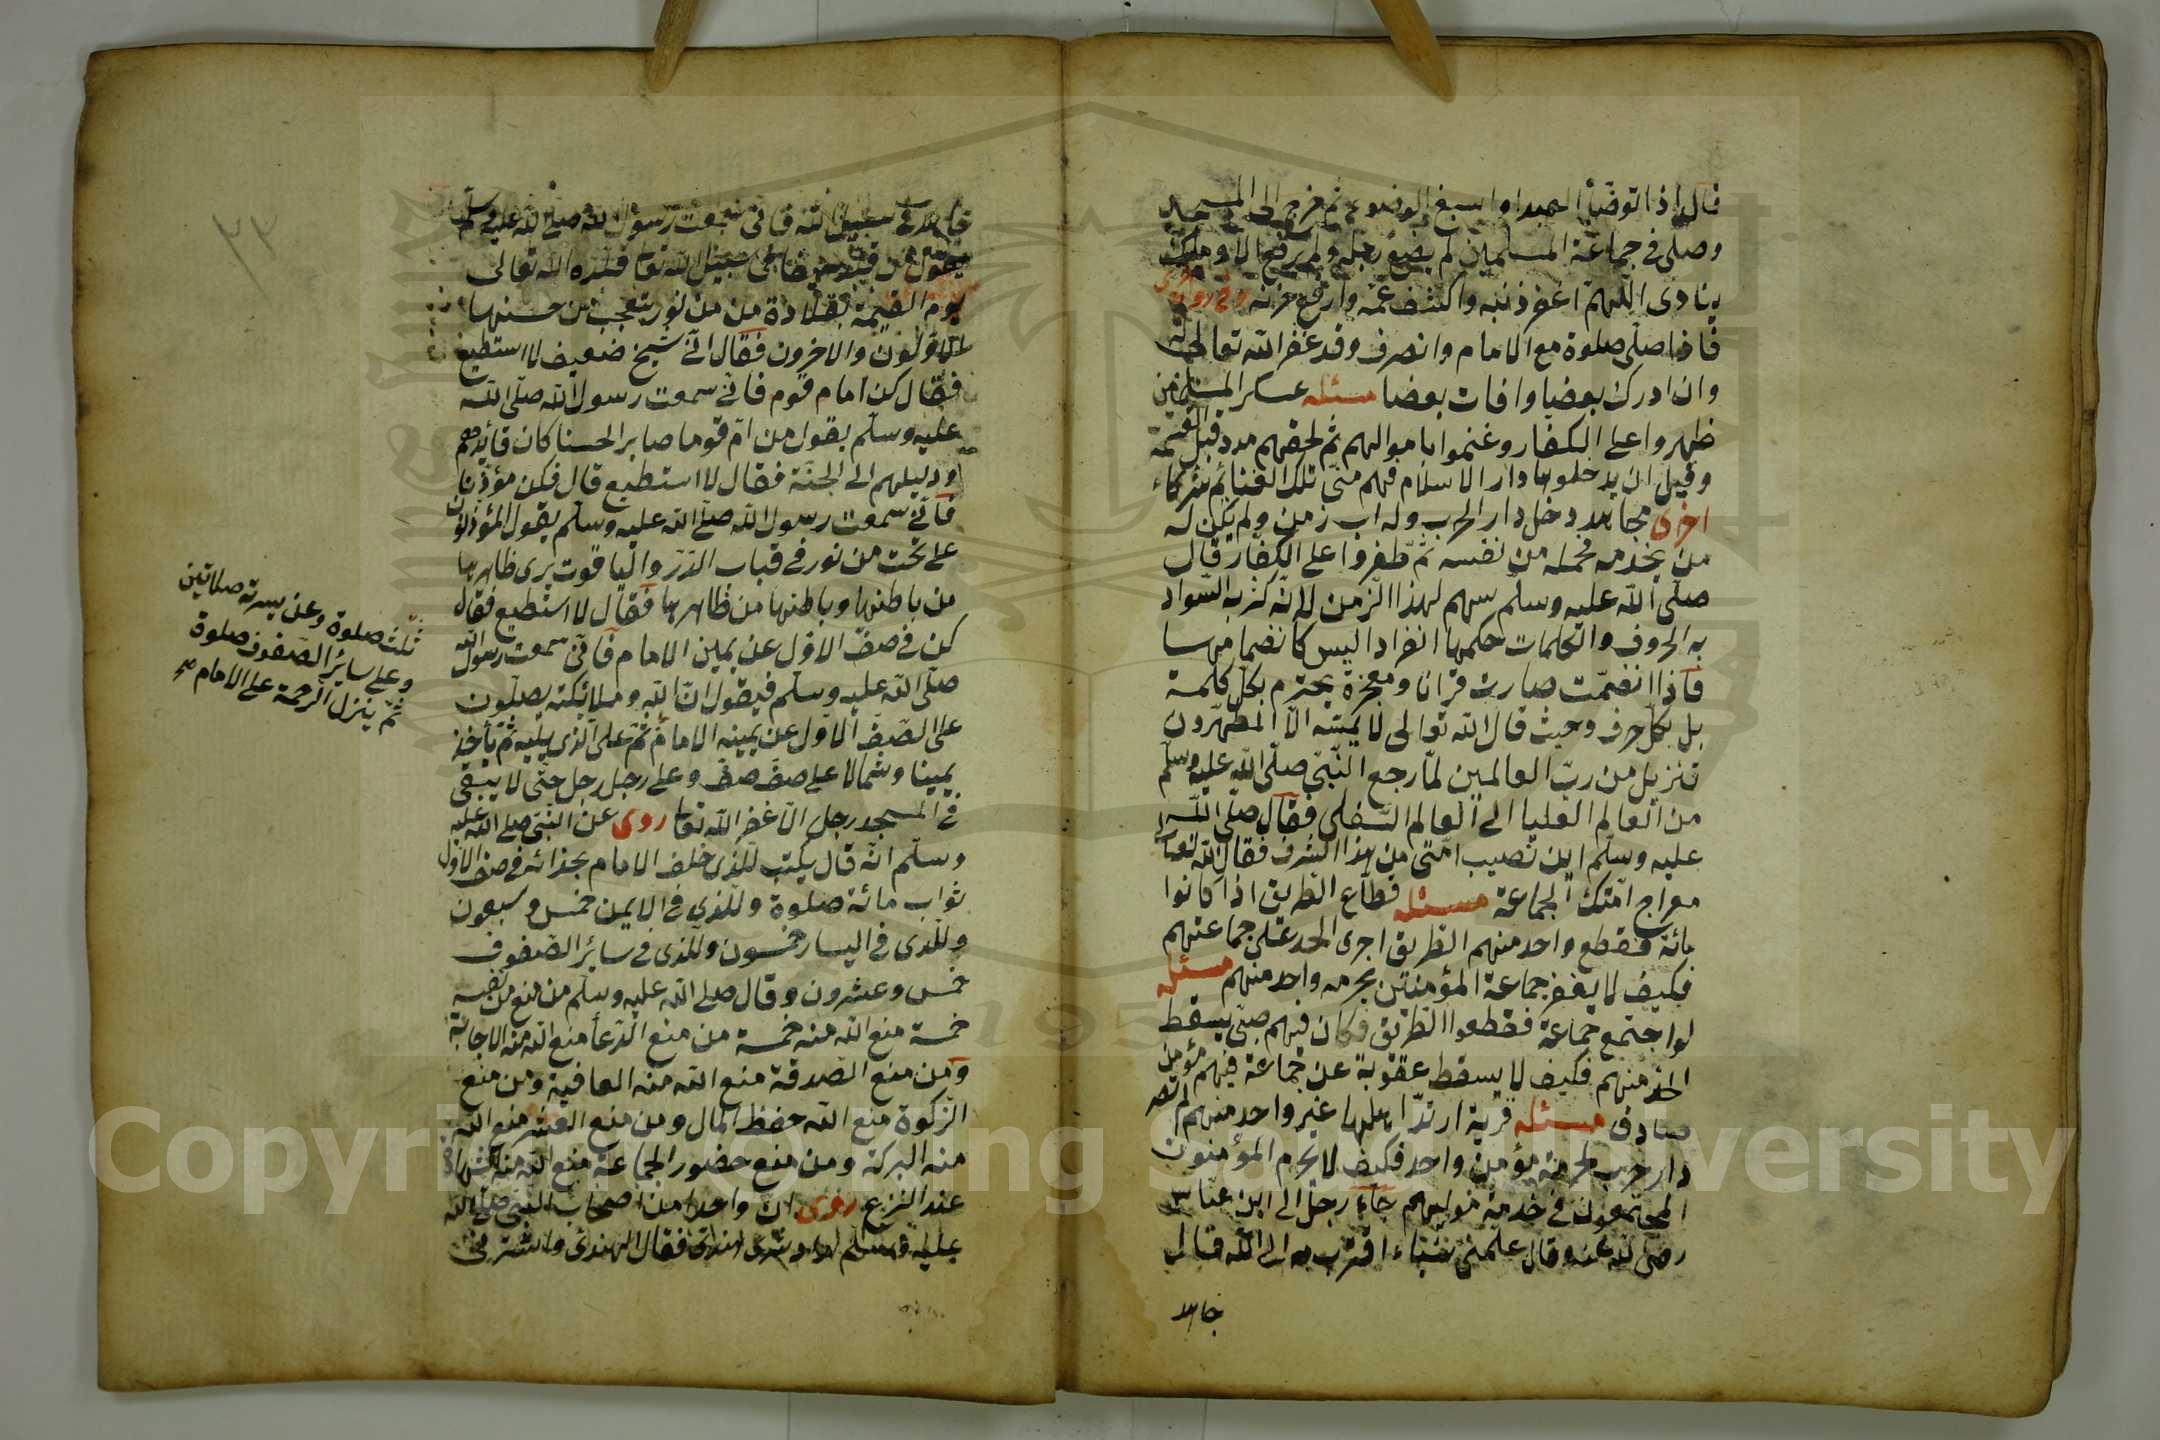 قال اذا توضأ العبد او اسبغ الوضوء ثم خرج الى المسجد
وصلى في جماعة المسلمين لم يضع رجله ولم يرفعها الا وملك
ينادى اللهم اغفر ذنبه واكشف غمه وارفع حزنه وفى رواية اخرى
فاذا صلى صلوة مع الامام وانصرف وقد غفر الله تعالى له
وان ادرك بعضا وافات بعضا مسئله عسكر المسلمين
ظهروا على الكفار وغنموا اموالهم ثم لحقهم مدد قبل القسمة
وقبل ان يدخلوها دار الاسلام فهم متى تلك الغنائم شركاء
اخرى مجاهد دخل دار الحرب وله اب زمن ولم يكن له
من يخدمه فحمله من نفسه ثم ظفروا على الكفار قال
صلى الله عليه وسلم سهم لهذا الزمن لانه كثر به السواد
به الحروف والكلمات حكمها انفرادا ليس كانضمامها
فاذا انضمت صارت قرانا ومعجزة يحترم بكل كلمة
بل بكل حرف وحيث قال الله تعالى لا يمسه الا المطهرون
تنزيل من رب العالمين لما رجع النبي صلى الله عليه وسلم
من العالم العليا الى العالم السفلى فقال صلى الله
عليه وسلم اين نصيب امتى من هذا الشرف فقال الله تعالى
معراج امتك الجماعة مسئله قطاع الطريق اذا كانوا
مائة فقطع واحد منهم الطريق اجرى الحد على جماعتهم
فكيف لا يغفر جماعة المؤمنين بحرمه واحد منهم مسئله
لو اجتمع جماعة فقطعوا الطريق وكان فيهم صبى يسقط
الحد منهم فكيف لا يسقط عقوبة عن جماعة فيهم مؤمن
صادق مسئله قرية ارتد اهلها غير واحد منهم لم تصر
دار حرب لحرمة مؤمن واحد فكيف لا يحرم المؤمنون
المجتمعون في خدمة مولهم جاء رجل الى ابن عباس
رضى الله عنه وقال علمنى شيئاء اقترب به الى الله فقال
جاهد
جاهد في سبيل الله فانى سمعت رسول الله صلى الله عليه وسلم
يقول من قتل في سبيل الله تعالى قلده الله تعالى
يوم القيمة بقلادة من من نور يتعجب من حسنها
الاولون والاخرون فقال انى شيخ ضعيف لا استطيع
فقال كن امام قوم فانى سمعت رسول الله صلى الله
عليه وسلم يقول من ام قوما صابرا لحسنا كان قائدهم
ودليلهم الى الجنة فقال لا استطيع قال فكن مؤذنا
فانى سمعت رسول الله صلى الله عليه وسلم يقول المؤذنون
على تخت من نور في قباب الدرر والياقوت يرى ظاهرها
من باطنها وباطنها من ظاهرها فقال لا استطيع فقال
كن في صف الاول عن يمين الامام فانى سمعت رسول الله
صلى الله عليه وسلم فيقول ان الله وملائكته يصلون
على الصف الاول عن يمينه الامام ثم على الذى يليه ثم ياخذ
يمينا وشمالا على صف صف وعلى رجل رجل حتى لا يبقى
في المسجد رجل الا غفر الله تعالى روى عن النبى صلى الله عليه
وسلم انه قال يكتب للذى خلف الامام بحذائه في صف الاول
ثواب مائة صلوة وللذى في الايمن خمس وسبعون
وللذى في اليسار خمسون وللذى في سائر الصفوف
خمس وعشرون وقال صلى الله عليه وسلم من منع من نفسه
خمسة منع الله منه خمسة من منع الدعأ منع الله منه الاجابة
ومن منع الصدقة منع الله منه العافية ومن منع
الزكوة منع الله حفظ المال ومن منع العشر منع الله
منه البركة ومن منع حضور الجماعة منع الله منه الشهادة
عند النزع روى ان واحدا من اصحاب النبى صلى الله
عليه وسلم فقال الهندى
ثلث صلوة وعن يسرته صلاتين
وعلى سائر الصفوف صلوة
ثم ينزل الرحمة على الامام صح
٢٣
Copyright © King Saud University
195